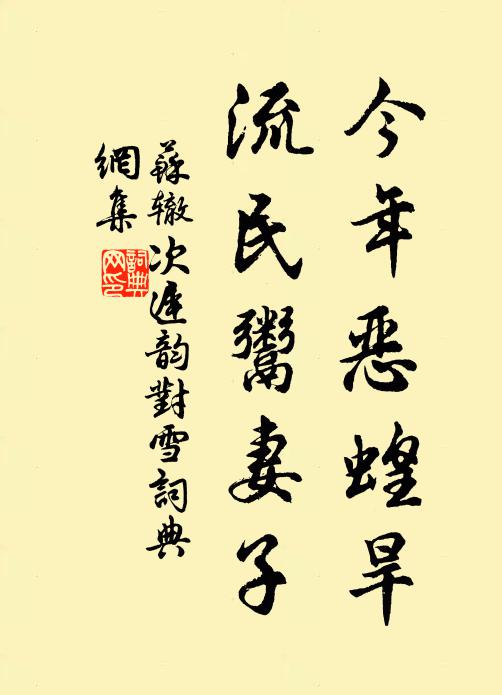 今年恶蝗旱
流民鬻妻子
蘇辙次遲韵對雪詞典
網集
詞典网印